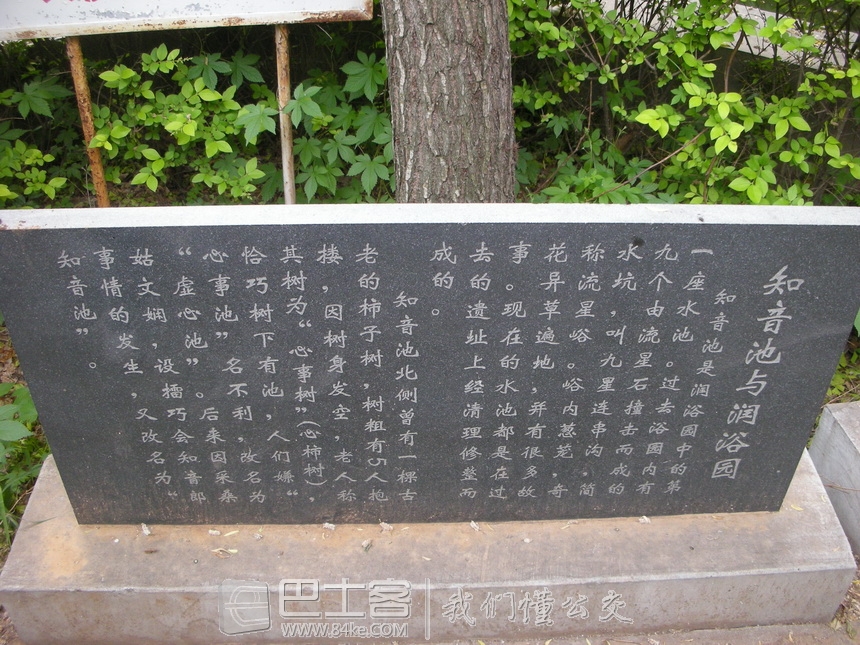 知音池与润浴园
知音池是润浴园中的第
一座水池。过去浴园内有
九个由流星石撞击而成的
水坑，叫九星连串沟，简
称流星峪。峪内葱茏，奇
花异草遍地，并有很多故
事。现在的水池都是在过
去的遗址上经清理修整而
成的。
知音池北侧曾有一棵古
老的柿子树，树粗有5人抱
搂，因树身发空，老人称
其树为“心事树”(心柿树)，
恰巧树下有池，人们嫌“
心事池”名不利，改名为
“虚心池”。后来因采桑
姑文娴，设擂巧会知音郎
事情的发生，又改名为“
知音池”。
巴士客 我们懂公交
www.84ke.com